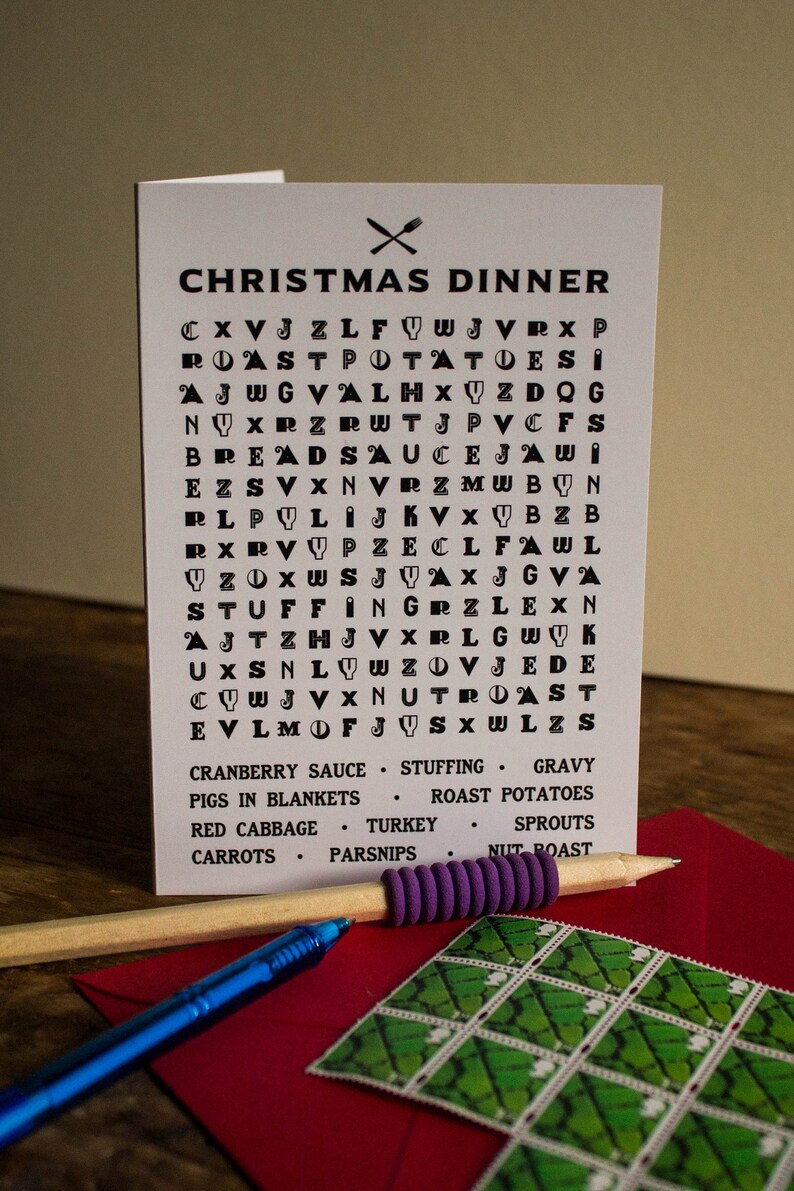 CHRISTMAS DINNER
C X V J Z L F Y W J V R X P
R O A S T P O T A T O E S I
A J W G V A L H X Y Z D Q G
N Y X R Z R W T J P V C F S
B R E A D S A U C E J A W I
E Z S V X N V R Z M W B Y N
R L P Y L I J K V X Y B Z B
R X R V Y P Z E C L F A W L
Y Z O X W S J Y A X J G V A
S T U F F I N G R Z L E X N
A J T Z H J V X R L G W Y K
U X S N L Y W Z O V J E D E
C Y W J V X N U T R O A S T
E V L M O F J Y S X W L Z S
CRANBERRY SAUCE • STUFFING • GRAVY
PIGS IN BLANKETS • ROAST POTATOES
RED CABBAGE • TURKEY • SPROUTS
CARROTS • PARSNIPS • NUT ROAST